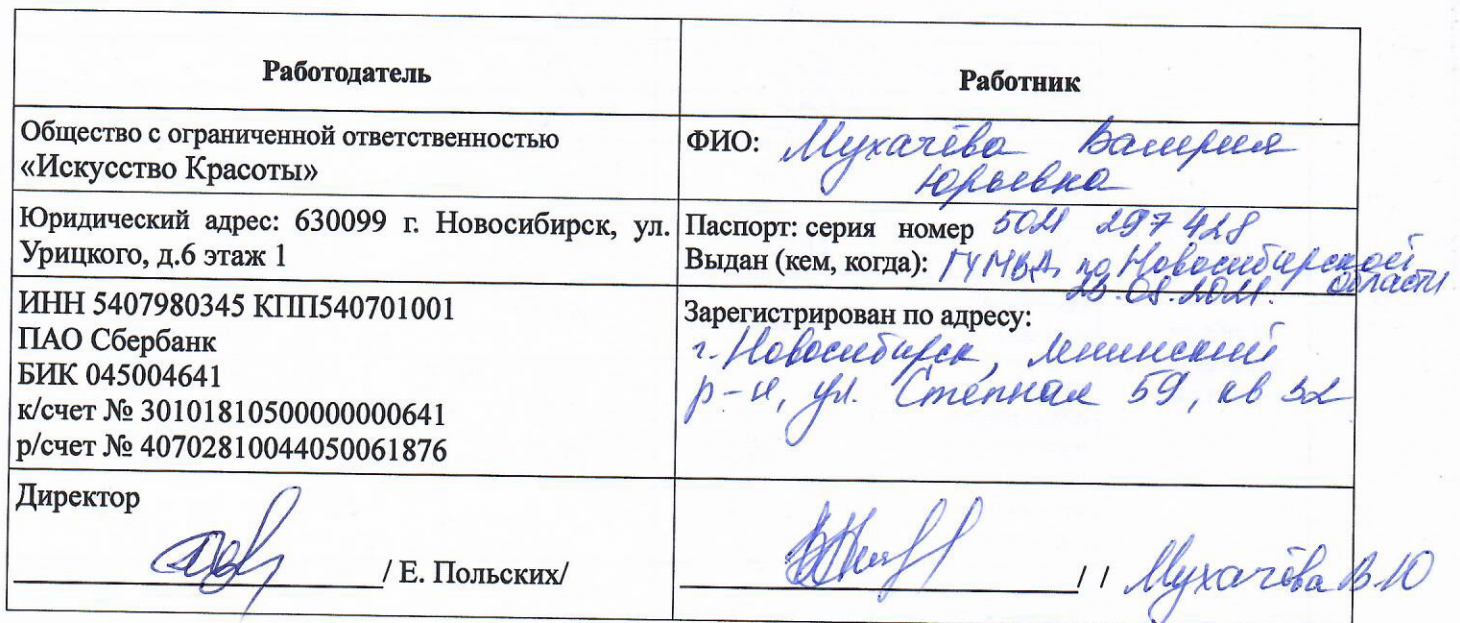 Работодатель
Работник
Общество с ограниченной ответственностью
«Искусство Красоты»
ФИО: Мухачёва Валерия
Юрьевна
Юридический адрес: 630099 г. Новосибирск, ул.
Урицкого, д.6 этаж 1
Паспорт: серия номер 5021 297 428
Выдан (кем, когда): ГУ МВД по Новосибирской
области
23.08.2021.
ИНН 5407980345 КПП540701001
ПАО Сбербанк
БИК 045004641
к/счет № 30101810500000000641
р/счет № 40702810044050061876
Зарегистрирован по адресу:
г. Новосибирск, Ленинский
р-н, ул. Степная 59, кв 32
Директор
/ Е. Польских/
/ / Мухачёва В.Ю